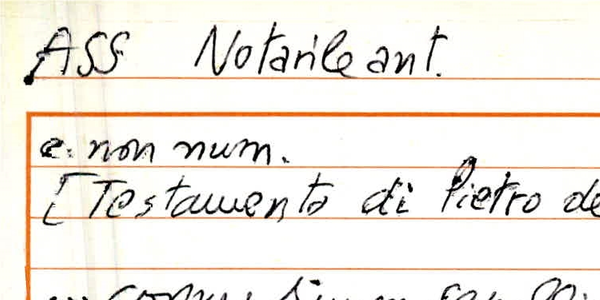 ASS Notarile ant.
c. non num.
[Testamento di Pietro de